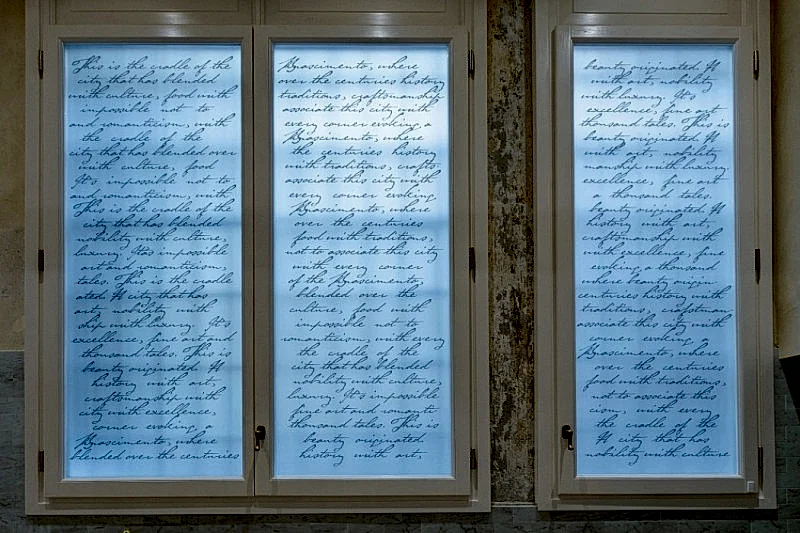 This is the cradle of the
city that has blended
with culture, food with
impossible not to
and romanticism, with
the cradle of the
city that has blended over
with culture, food
It's impossible not to
and romanticism, with
This is the cradle of the
city that has blended
nobility with culture,
luxury. It's impossible
art and romanticism,
tales. This is the cradle
ated. A city that has
art, nobility with
ship with luxury. It's
excellence, fine art and
thousand tales. This is
beauty originated. A
history with art,
craftsmanship with
city with excellence,
corner evoking a
Rnascimento, where
blended over the centuries
Rnascimento, where
over the centuries history
traditions, craftsmanship
associate this city with
every corner evoking a
Rnascimento, where
the centuries history
with traditions, crafts
associate this city with
every corner evoking
Rnascimento, where
over the centuries
food with traditions,
not to associate this city
with every corner
of the Rnascimento,
blended over the
culture, food with
impossible not to
romanticism, with every
the cradle of the
city that has blended
nobility with culture,
luxury. It's impossible
fine art and romantic
thousand tales. This is
beauty originated
history with art,
beauty originated. A
with art, nobility
with luxury. It's
excellence, fine art
thousand tales. This is
beauty originated. A
with art, nobility
manship with luxury.
excellence, fine art
thousand tales.
beauty originated. A
history with art,
craftsmanship with
with excellence, fine
evoking a thousand
where beauty origin
centuries history with
traditions, craftsman
associate this city with
corner evoking
Rnascimento, where
over the centuries
food with traditions,
not to associate this
cism, with every
the cradle of the
A city that has
nobility with culture